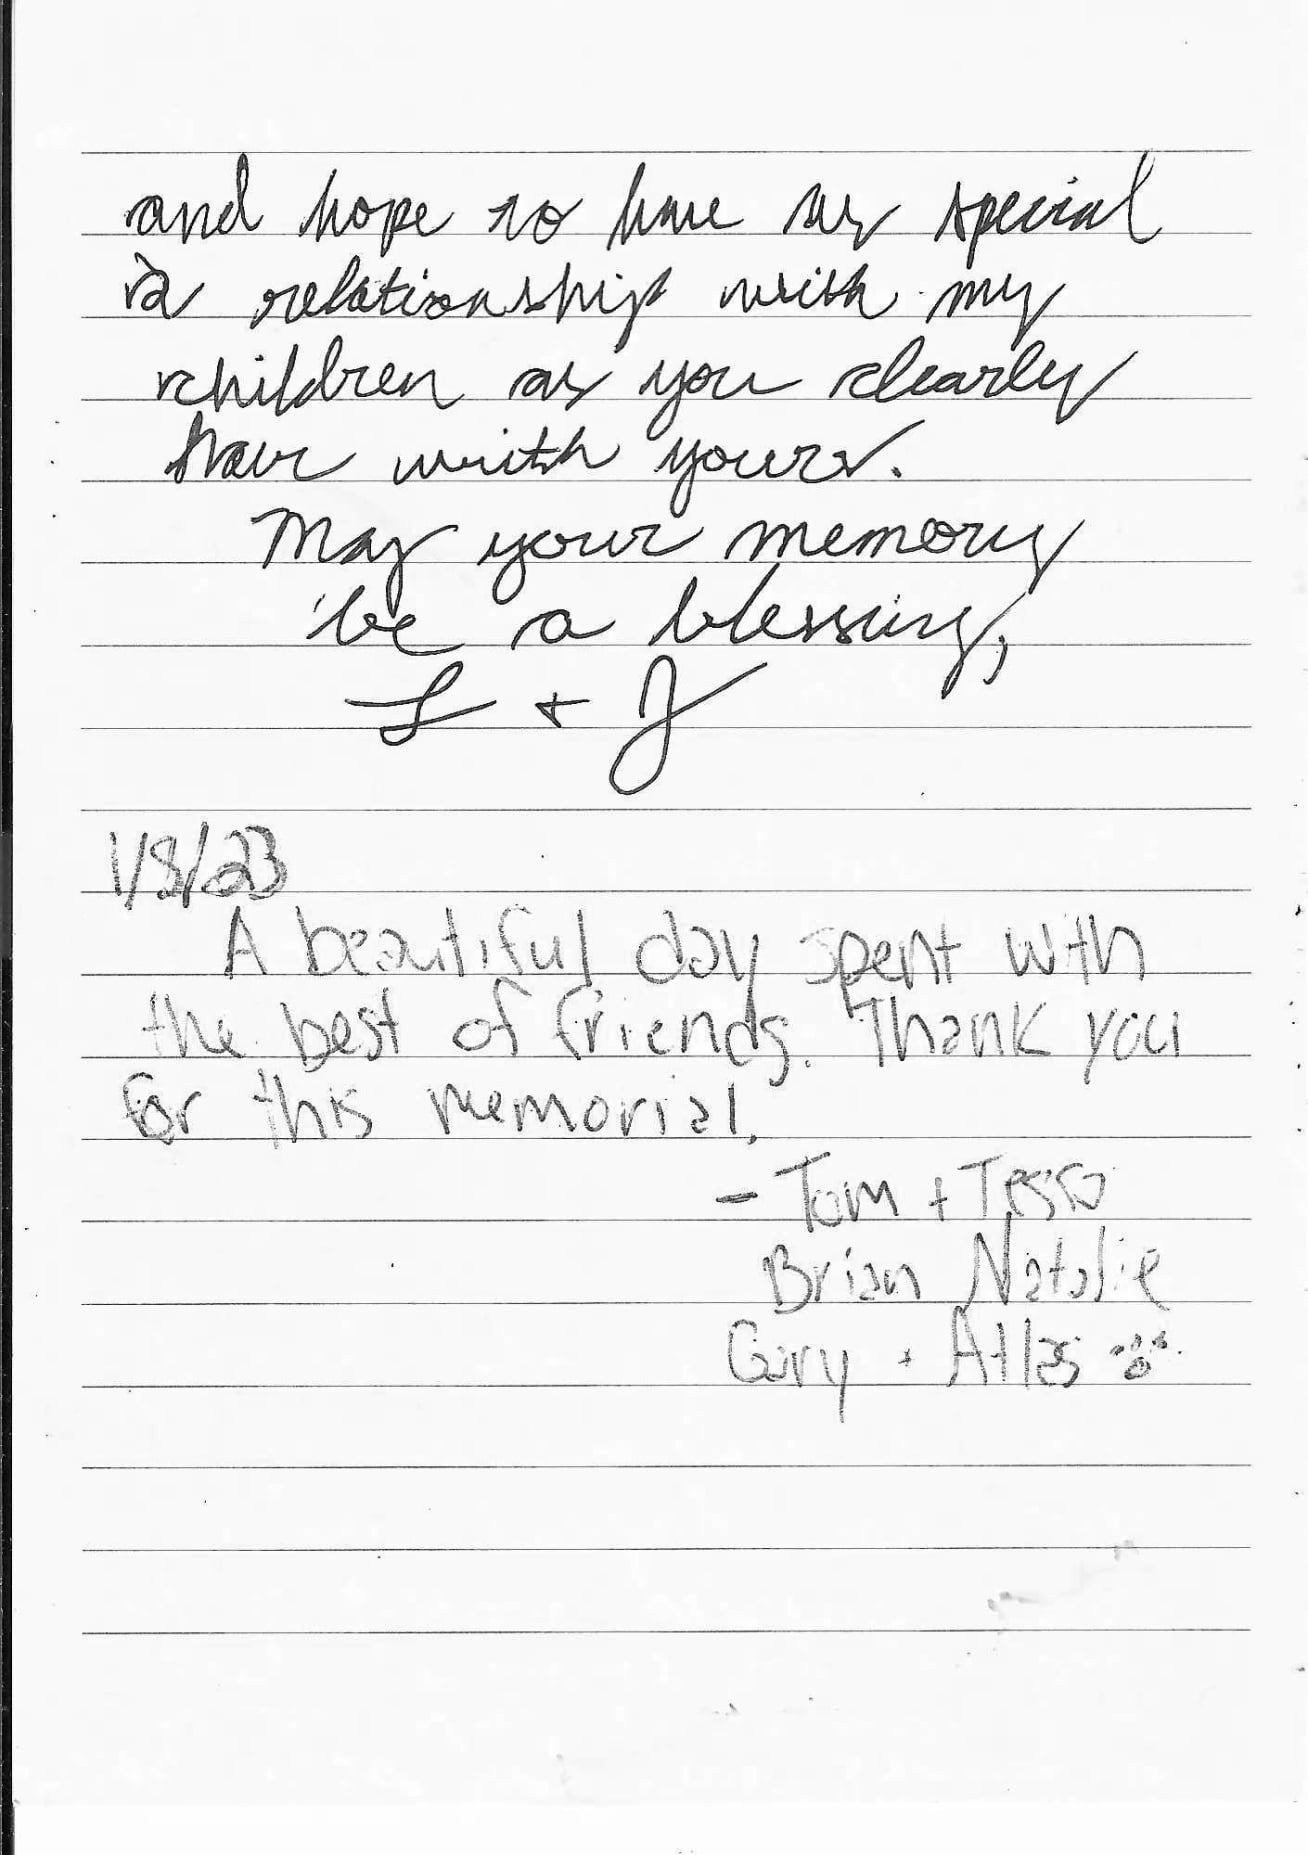 and hope to have as special
a relationship with my
children as you clearly
have with yours.
May your memory
be a blessing,
L + J
1/8/23
A beautiful day spent with
the best of friends. Thank you
for this memorial.
- Tom + Tessa
Brian Natalie
Gary + Atlas